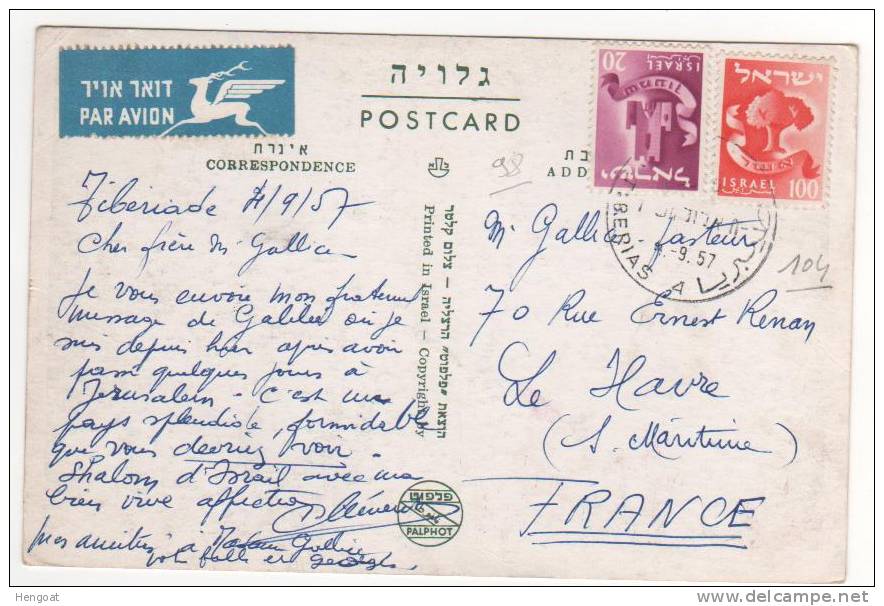 דואר אויר
PAR AVION
גלויה
POSTCARD
אינרת
CORRESPONDENCE
בת
ADD
20
ISRAEL
ישראל
ישראל
ISRAEL
100
BERIAS
-9.57
طبريا
98
104
Tiberiade 4/9/57
Cher frère Mr Gallica
Je vous envoie mon fraternel
message de Galilée où je
suis depuis hier après avoir
passé quelques jours à
Jerusalem - C'est un
pays splendide, formidable
que vous devriez voir -
Shalom d'Israël avec ma
bien vive affection
Mes amitiés à Madame Gallica
הוצאת "פלפוט" הרצליה — צלום קלטר
Printed in Israel — Copyright by
פלפוט
PALPHOT
Mr Gallica - Pasteur
70 Rue Ernest Renan
Le Havre
(S. Maritime)
FRANCE
Hengoat
delcampe.net